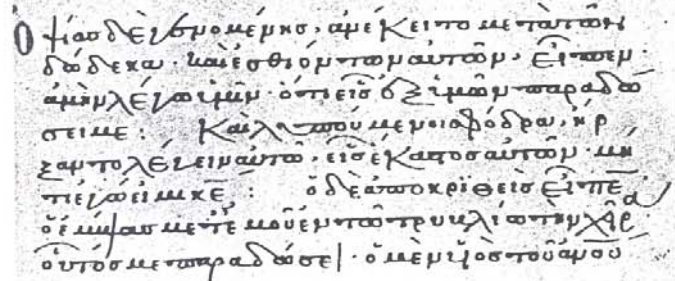 Ὀψίας δὲ γενομένης, ἀνέκειτο μετὰ τῶν
δώδεκα · καὶ ἐσθιόντων αὐτῶν, εἶπεν ·
ἀμὴν λέγω ὑμῖν · ὅτι εἷς ἐξ ὑμῶν παραδώ
σει με : Καὶ λυπούμενοι σφόδρα, ἤρ
ξαντο λέγειν αὐτῶ, εἷς ἕκαστος αὐτῶν · μή
τι ἐγώ εἰμι κ̅ε̅ : ὁ δὲ ἀποκριθεὶς εἶπε
ὁ ἐμβάψας μετ' ἐμοῦ ἐν τῶ τρυβλίω τὴν χεῖρα
οὗτός με παραδώσει · ὁ μὲν υἱὸς τοῦ α̅ν̅ο̅υ̅